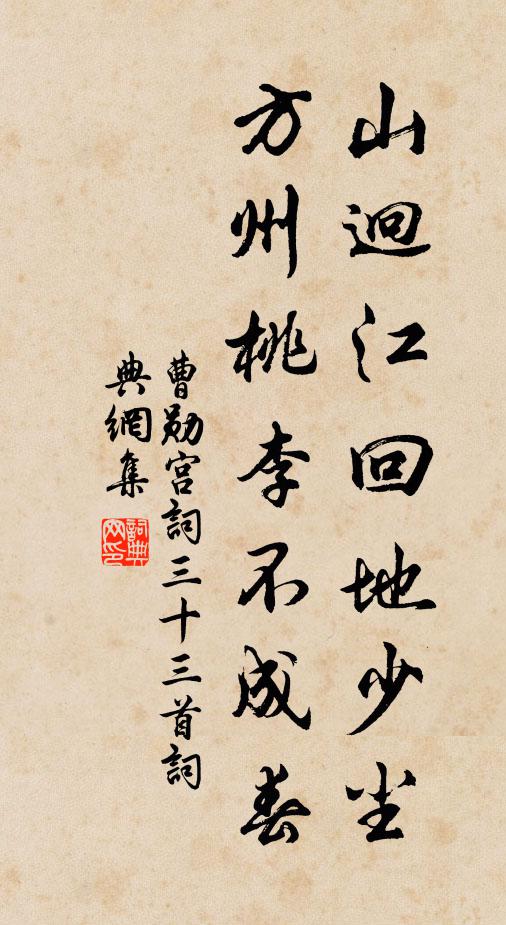 山迴江回地少尘
方州桃李不成春
曹勛宮詞三十三首詞
典網集
詞典网印